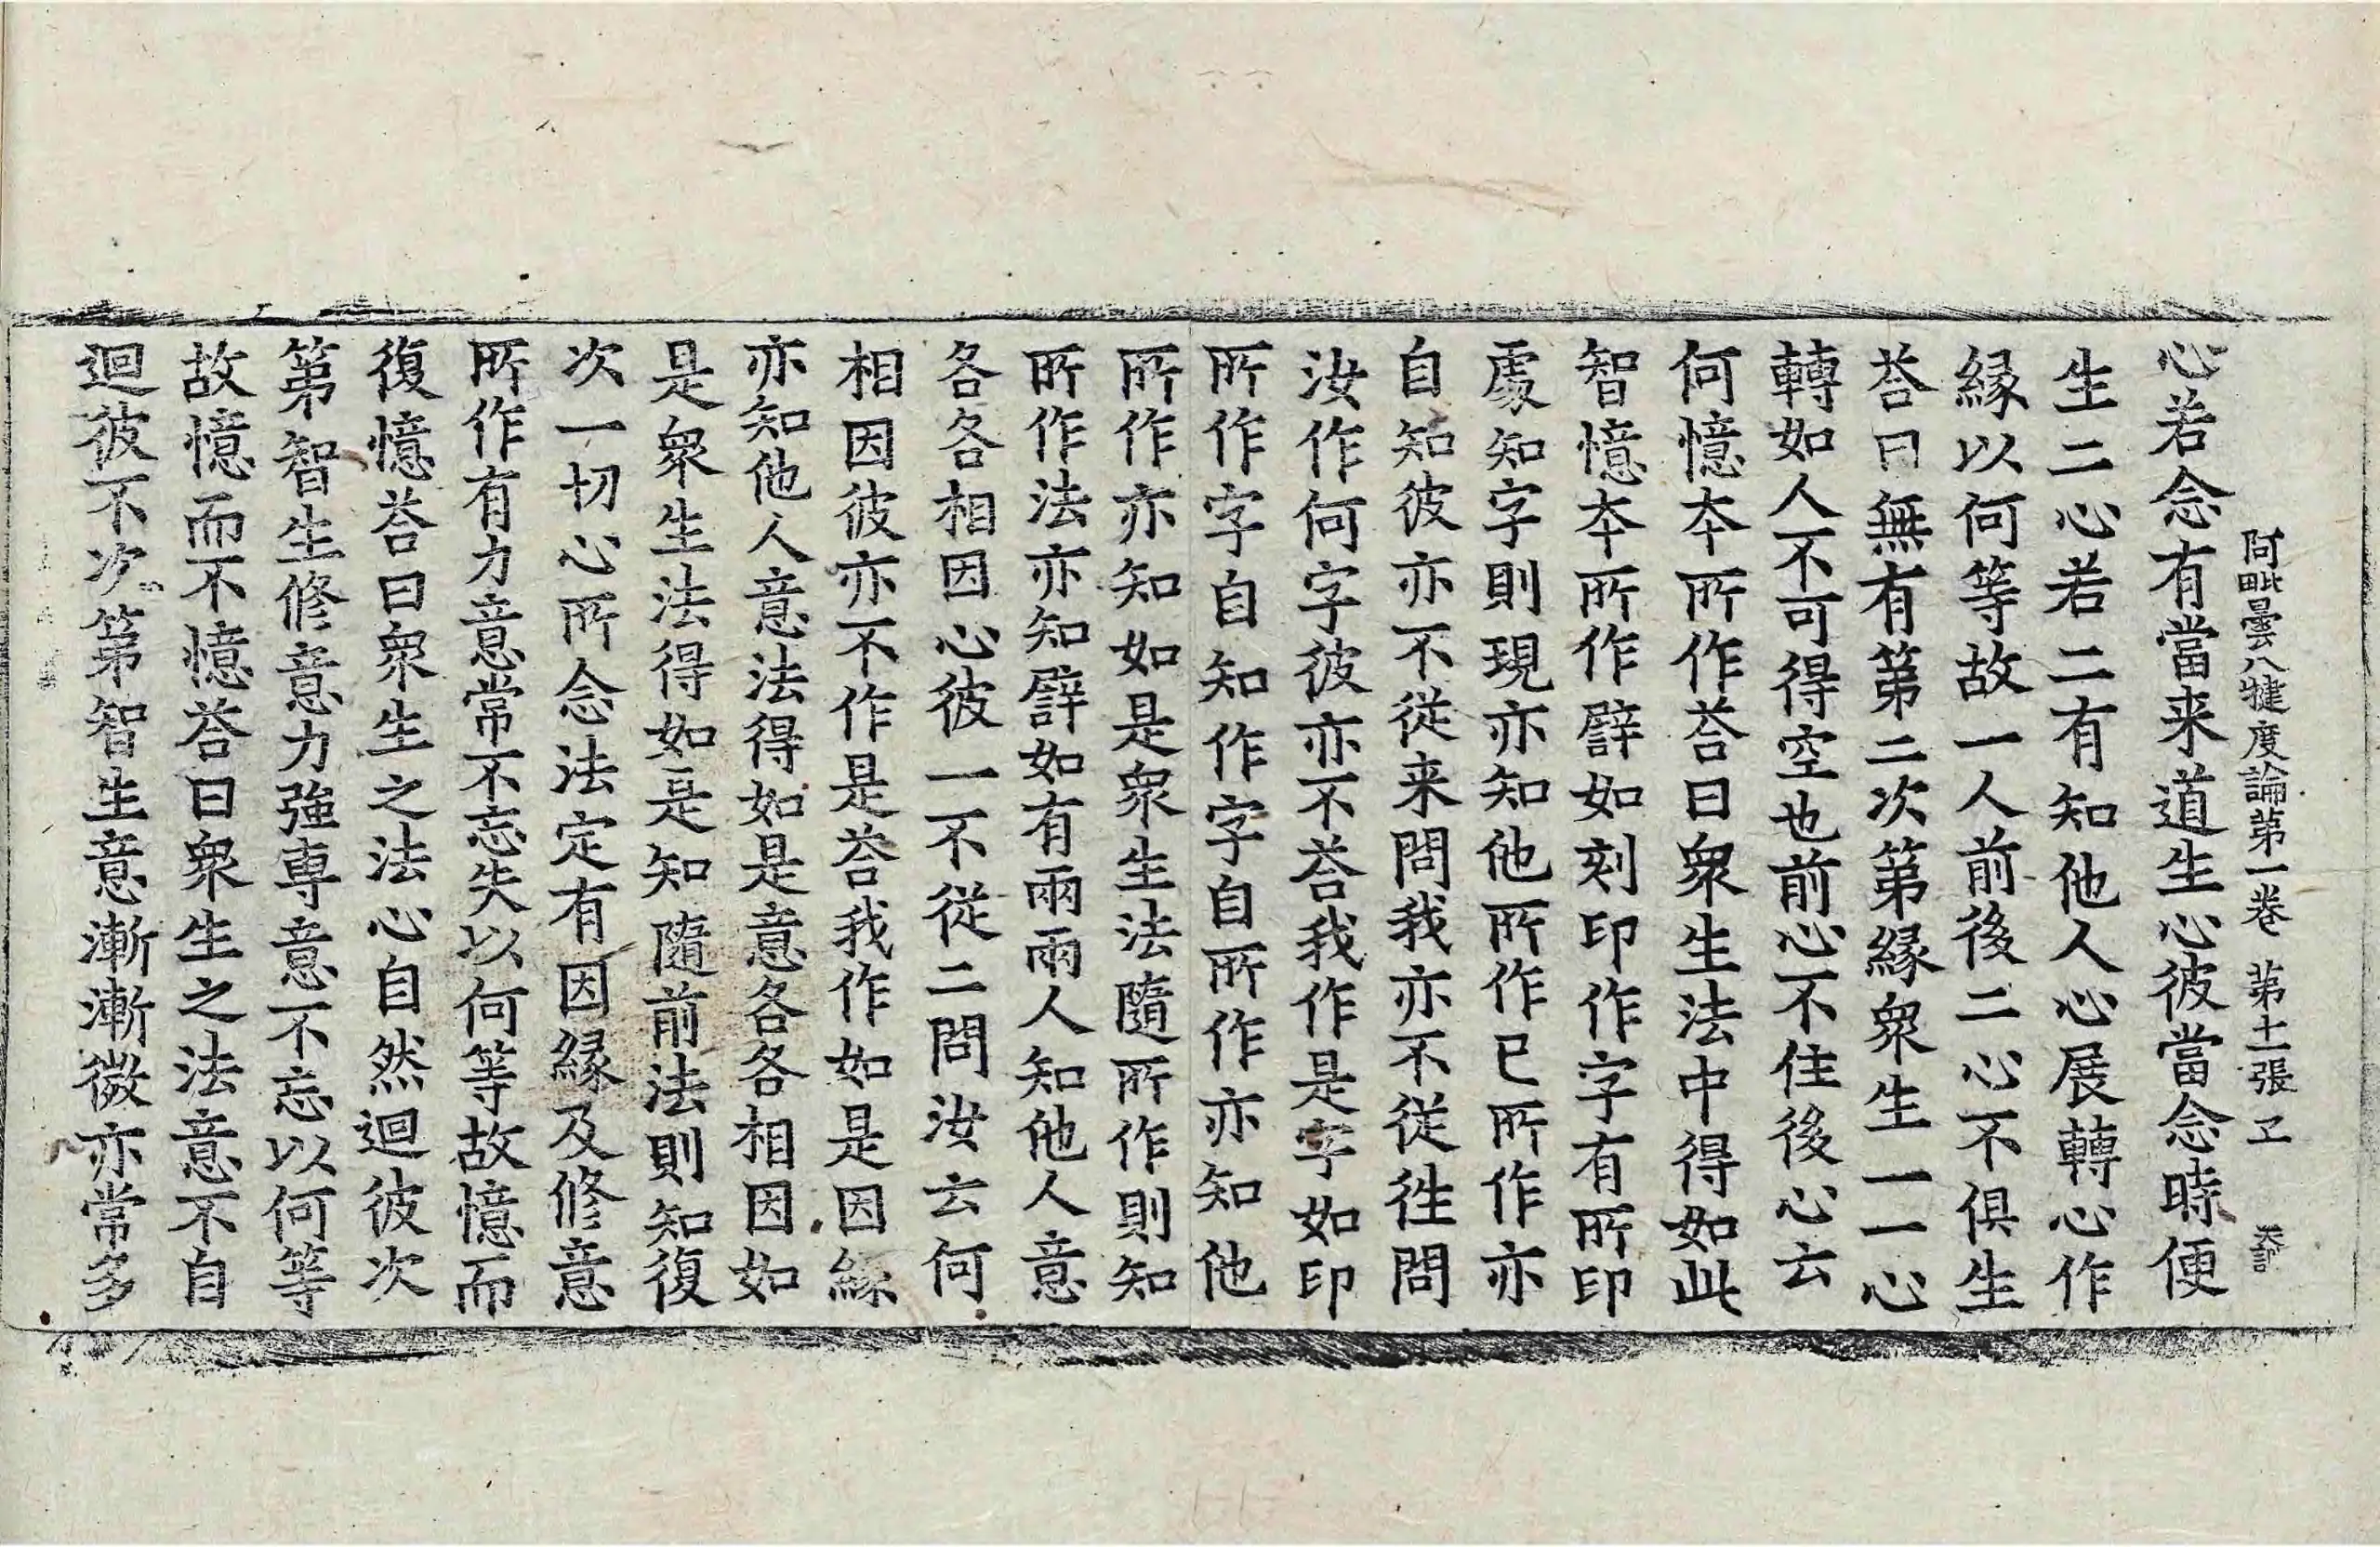 阿毗曇八犍度論第一卷 第十一張 㠪
心若念有當来道生心彼當念時便
生二心若二有知他人心展轉心作
縁以何等故一人前後二心不俱生
荅曰無有第二次第縁衆生一一心
轉如人不可得空也前心不住後心云
何憶夲所作荅曰衆生法中得如此
智憶夲所作譬如刻印作字有所印
處知字則現亦知他所作已所作亦
自知彼亦不從来問我亦不從徃問
汝作何字彼亦不荅我作是字如印
所作字自知作字自所作亦知他
所作亦知如是衆生法隨所作則知
所作法亦知譬如有兩兩人知他人意
各各相因心彼一不從二問汝云何
相因彼亦不作是荅我作如是因縁
亦知他人意法得如是意各各相因如
是衆生法得如是知隨前法則知復
次一切心所念法定有因縁及修意
所作有力意常不忘失以何等故憶而
復憶荅曰衆生之法心自然迴彼次
第智生修意力強専意不忘以何等
故憶而不憶荅曰衆生之法意不自
迴彼不次第智生意漸漸微亦常多